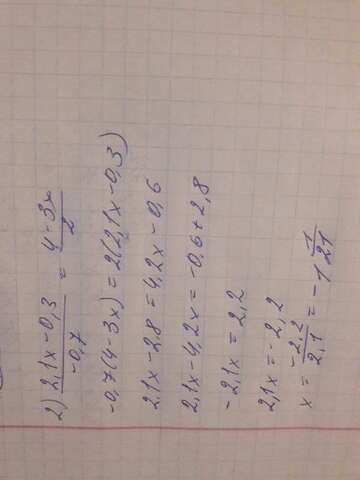 2) (2,1x-0,3)/(-0,7) = (4-3x)/2
-0,7(4-3x)=2(2,1x-0,3)
2,1x-2,8=4,2x-0,6
2,1x-4,2x=-0,6+2,8
-2,1x=2,2
2,1x=-2,2
x = (-2,2)/(2,1) = -1 1/21